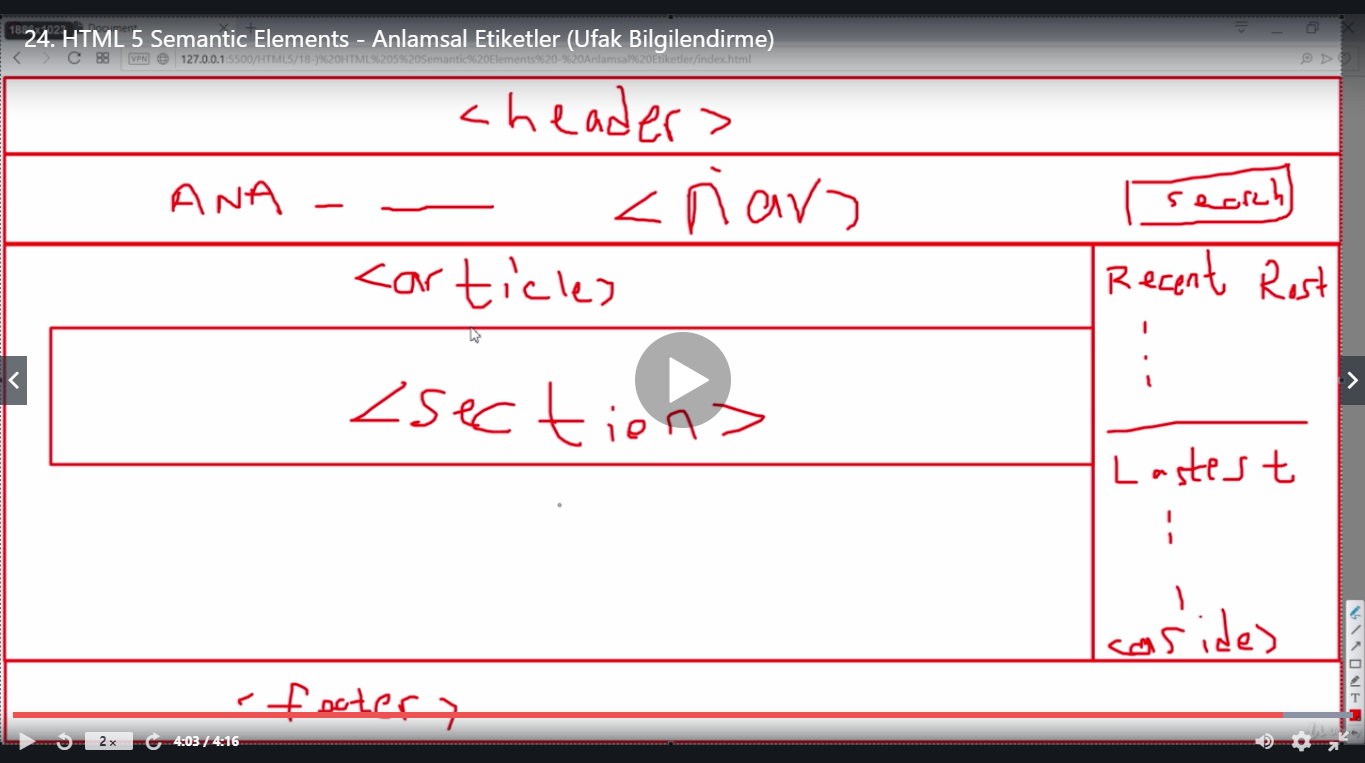 24. HTML 5 Semantic Elements - Anlamsal Etiketler (Ufak Bilgilendirme)
Document
VPN 127.0.0.1:5500/HTML5/18-)%20HTML%205%20Semantic%20Elements%20-%20Anlamsal%20Etiketler/index.html
<header>
ANA - — <nav> search
<article>
Recent Post
<section>
Lastest
<aside>
<footer>
2× 4:03 / 4:16